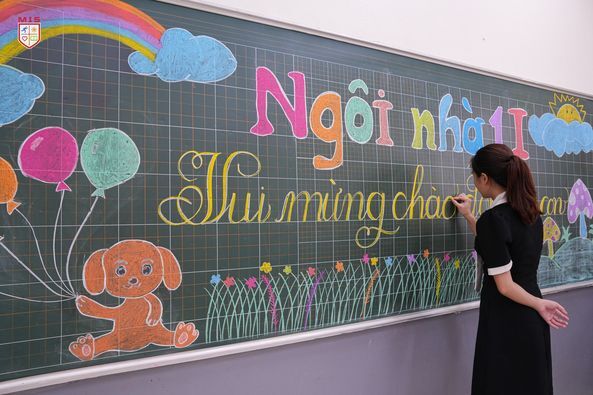 MIS
Ngôi nhà 1I
Vui mừng chào